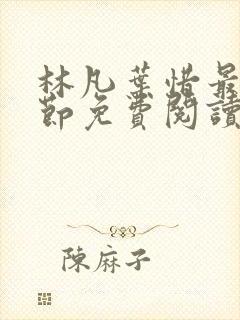 林凡葉惜最
節免費閱讀
陳麻子